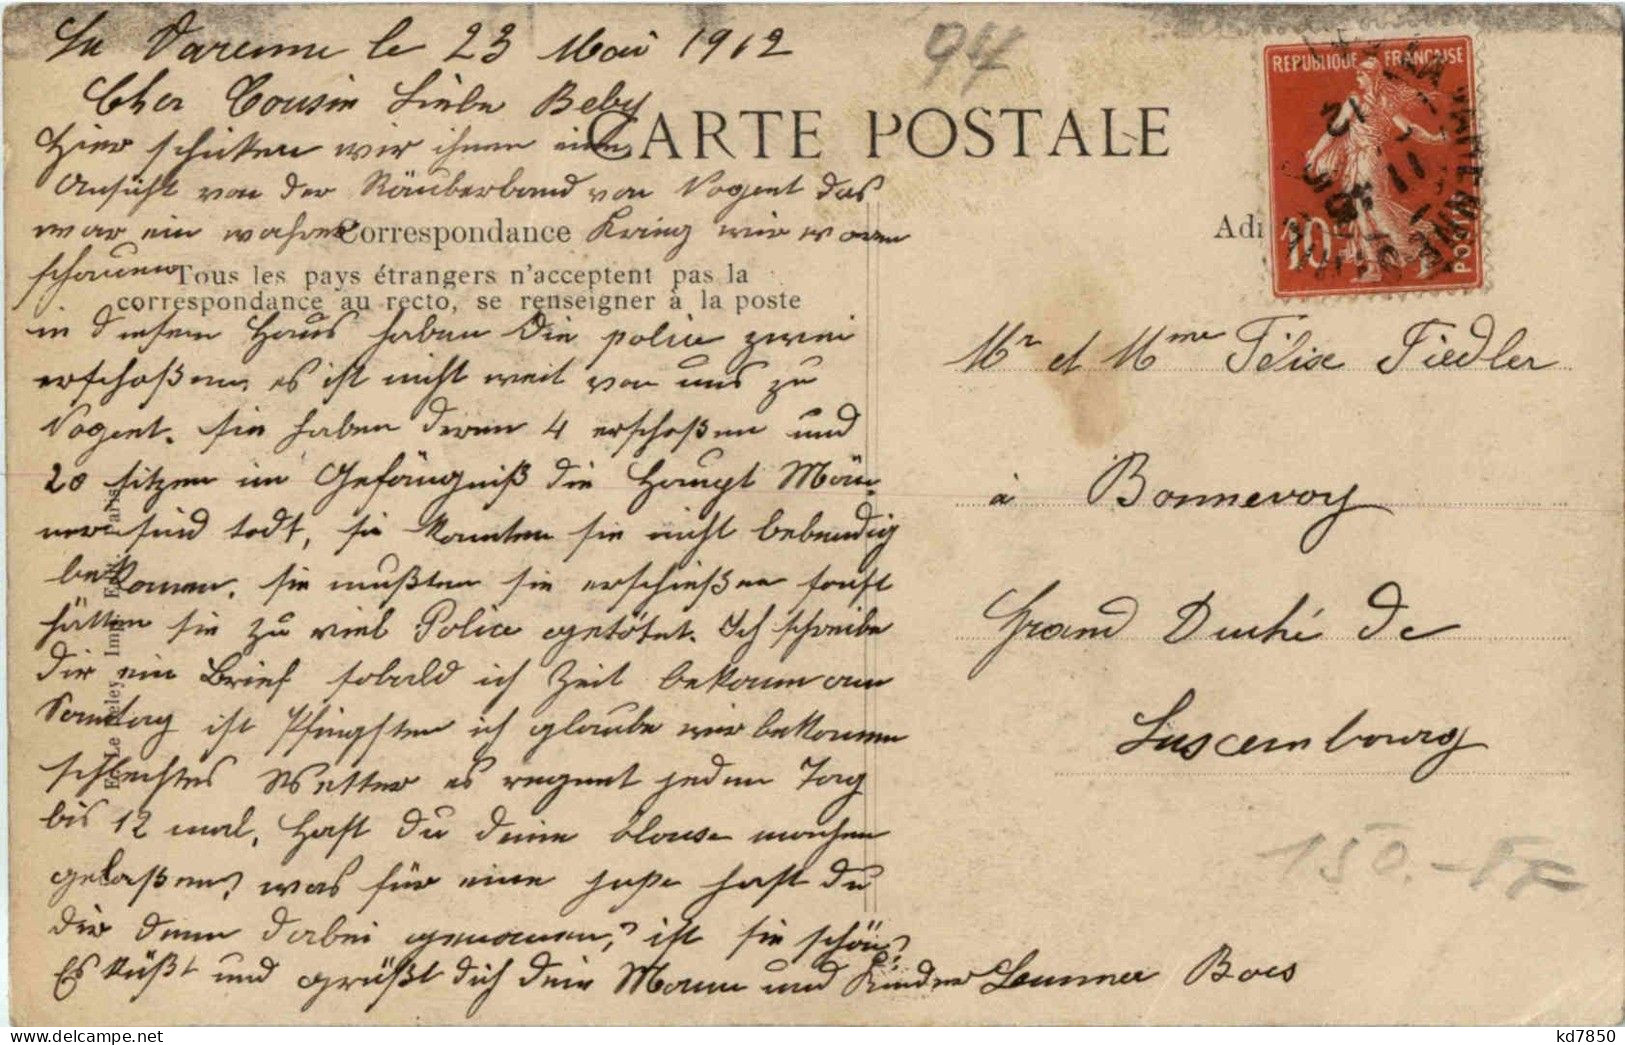 La Varenne le 23 Mai 1912
94
Cher Cousin Liebe Beby
CARTE POSTALE
Hier schicken wir ihnen eine
Ansicht von der Räuberband von Nogent das
war ein wahrer Krieg wir waren
Correspondance
schauen
Tous les pays étrangers n'acceptent pas la
correspondance au recto, se renseigner à la poste
in diesem Haus haben die police zwei
erschoßen, es ist nicht weit von uns zu
Nogent. sie haben deren 4 erschoßen und
20 sitzen im Gefängniß die Haupt Män-
ner sind todt, sie konnten sie nicht lebendig
bekomen. sie mußten sie erschießen sonst
hätten sie zu viel Police getötet. Ich schreibe
dir ein Brief sobald ich Zeit bekomm am
Sonntag ist Pfingsten ich glaube wir bekomen
schlechtes Wetter es regnet jeden Tag
bis 12 mal. Hast du deine blouse machen
gelaßen? was für eine hast du
dir denn dabei genomen? ist sie schön?
Es küßt und grüßt dich dein Mann und Kinder
E. Le Deley, Imp. Edit. Paris
REPUBLIQUE FRANÇAISE
10
POSTES
Adr
Mr et Mme Félix Fiedler
à Bonnevoy
Grand Duché de
Luxembourg
150.-
Boes
kd7850